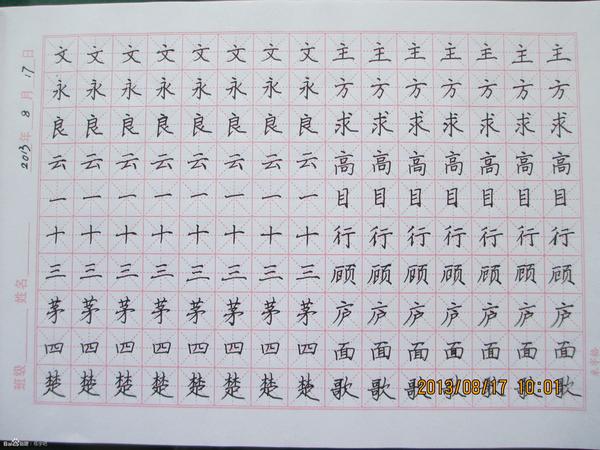 文文文文文文文文主主主主主主主
永永永永永永永永方方方方方方方
良良良良良良良良求求求求求求求
云云云云云云云云高高高高高高高
一一一一一一一一目目目目目目目
十十十十十十十十行行行行行行行
三三三三三三三三顾顾顾顾顾顾顾
茅茅茅茅茅茅茅茅庐庐庐庐庐庐庐
四四四四四四四四面面面面面面面
楚楚楚楚楚楚楚楚歌歌歌歌歌歌歌
班级 姓名 2013年8月17日
米字格
2013/08/17 10:01